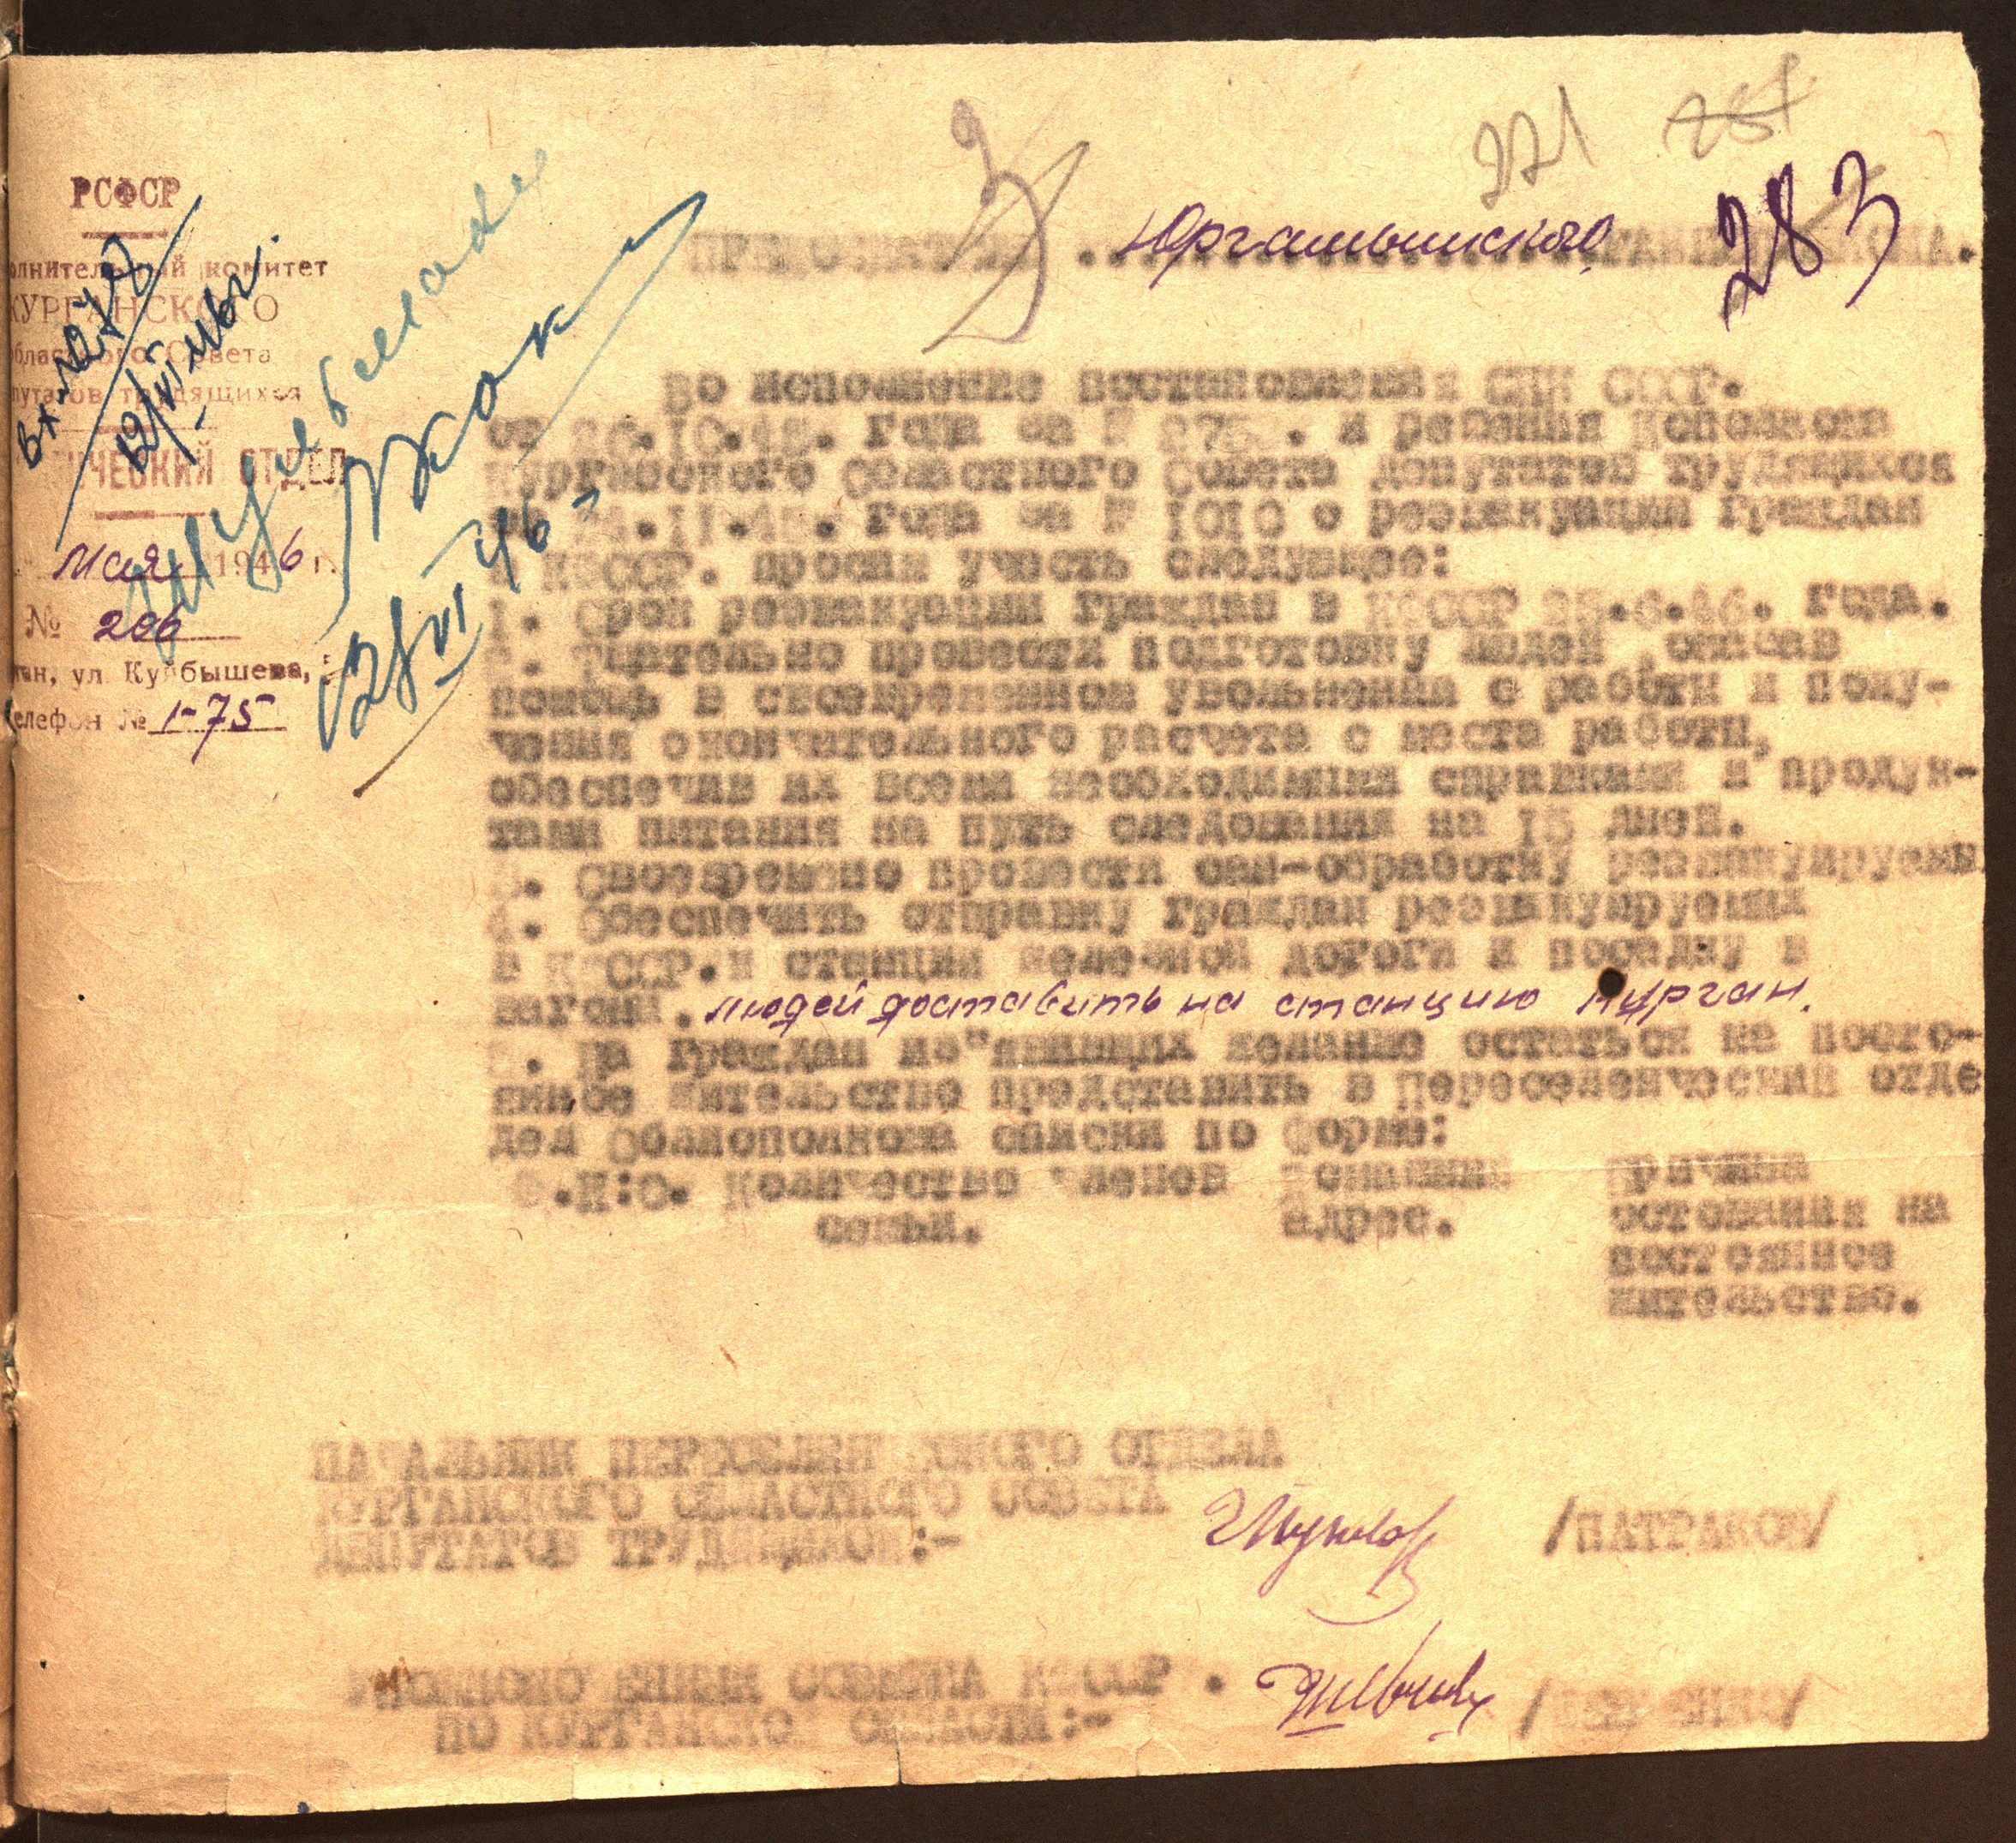 271
283
РСФСР
олнительный комитет
КУРГАНСКОГО
бластного Совета
путатов трудящихся
ИЧЕСКИЙ ОТДЕЛ
мая 1946 г.
№ 206
ган, ул. Куйбышева,
елефон № 1-75
вх №
12/VI
28/VI 46
ПРЕДСЕДАТЕЛЮ . Юргамышского
Во исполнение постановления СНК СССР.
от .10.45. года за № и решения исполкома
Курганского областного Совета депутатов трудящихся
.11.45. года за № 1010 о реэвакуации граждан
в К ССР. просим учесть следующее:
1. Срок реэвакуации граждан в К ССР 25.6.46. года.
2. Тщательно провести подготовку людей ,оказав
помощь в своевременном увольнении с работы и полу-
чения окончательного расчета с места работы,
обеспечив их всеми необходимыми справками и продук-
тами питания на путь следования на 15 дней.
3. Своевремено провести сан-обработку реэвакуируемы
4. Обеспечить отправку граждан реэвакуируемых
в К ССР.к станции железной дороги и посадку в
вагоны. людей доставить на станцию Курган.
5. На граждан из"явивщих желание остаться на посто-
янное жительство представить в Переселенческий отде
дел Облисполкома списки по форме:
Ф.И:О. Количество членов Домашний Причина
семьи. адрес. остования на
постоянное
жительство.
НАЧАЛЬНИК ПЕРЕСЕЛЕНЧЕСКОГО ОТДЕЛА
КУРГАНСКОГО ОБЛАСТНОГО СОВЕТА
ДЕПУТАТОВ ТРУДЯЩИХСЯ:- /ПАТРАКОВ/
СОВМИНА К ССР .
ПО КУРГАНСКОЙ ОБЛАСТИ:-